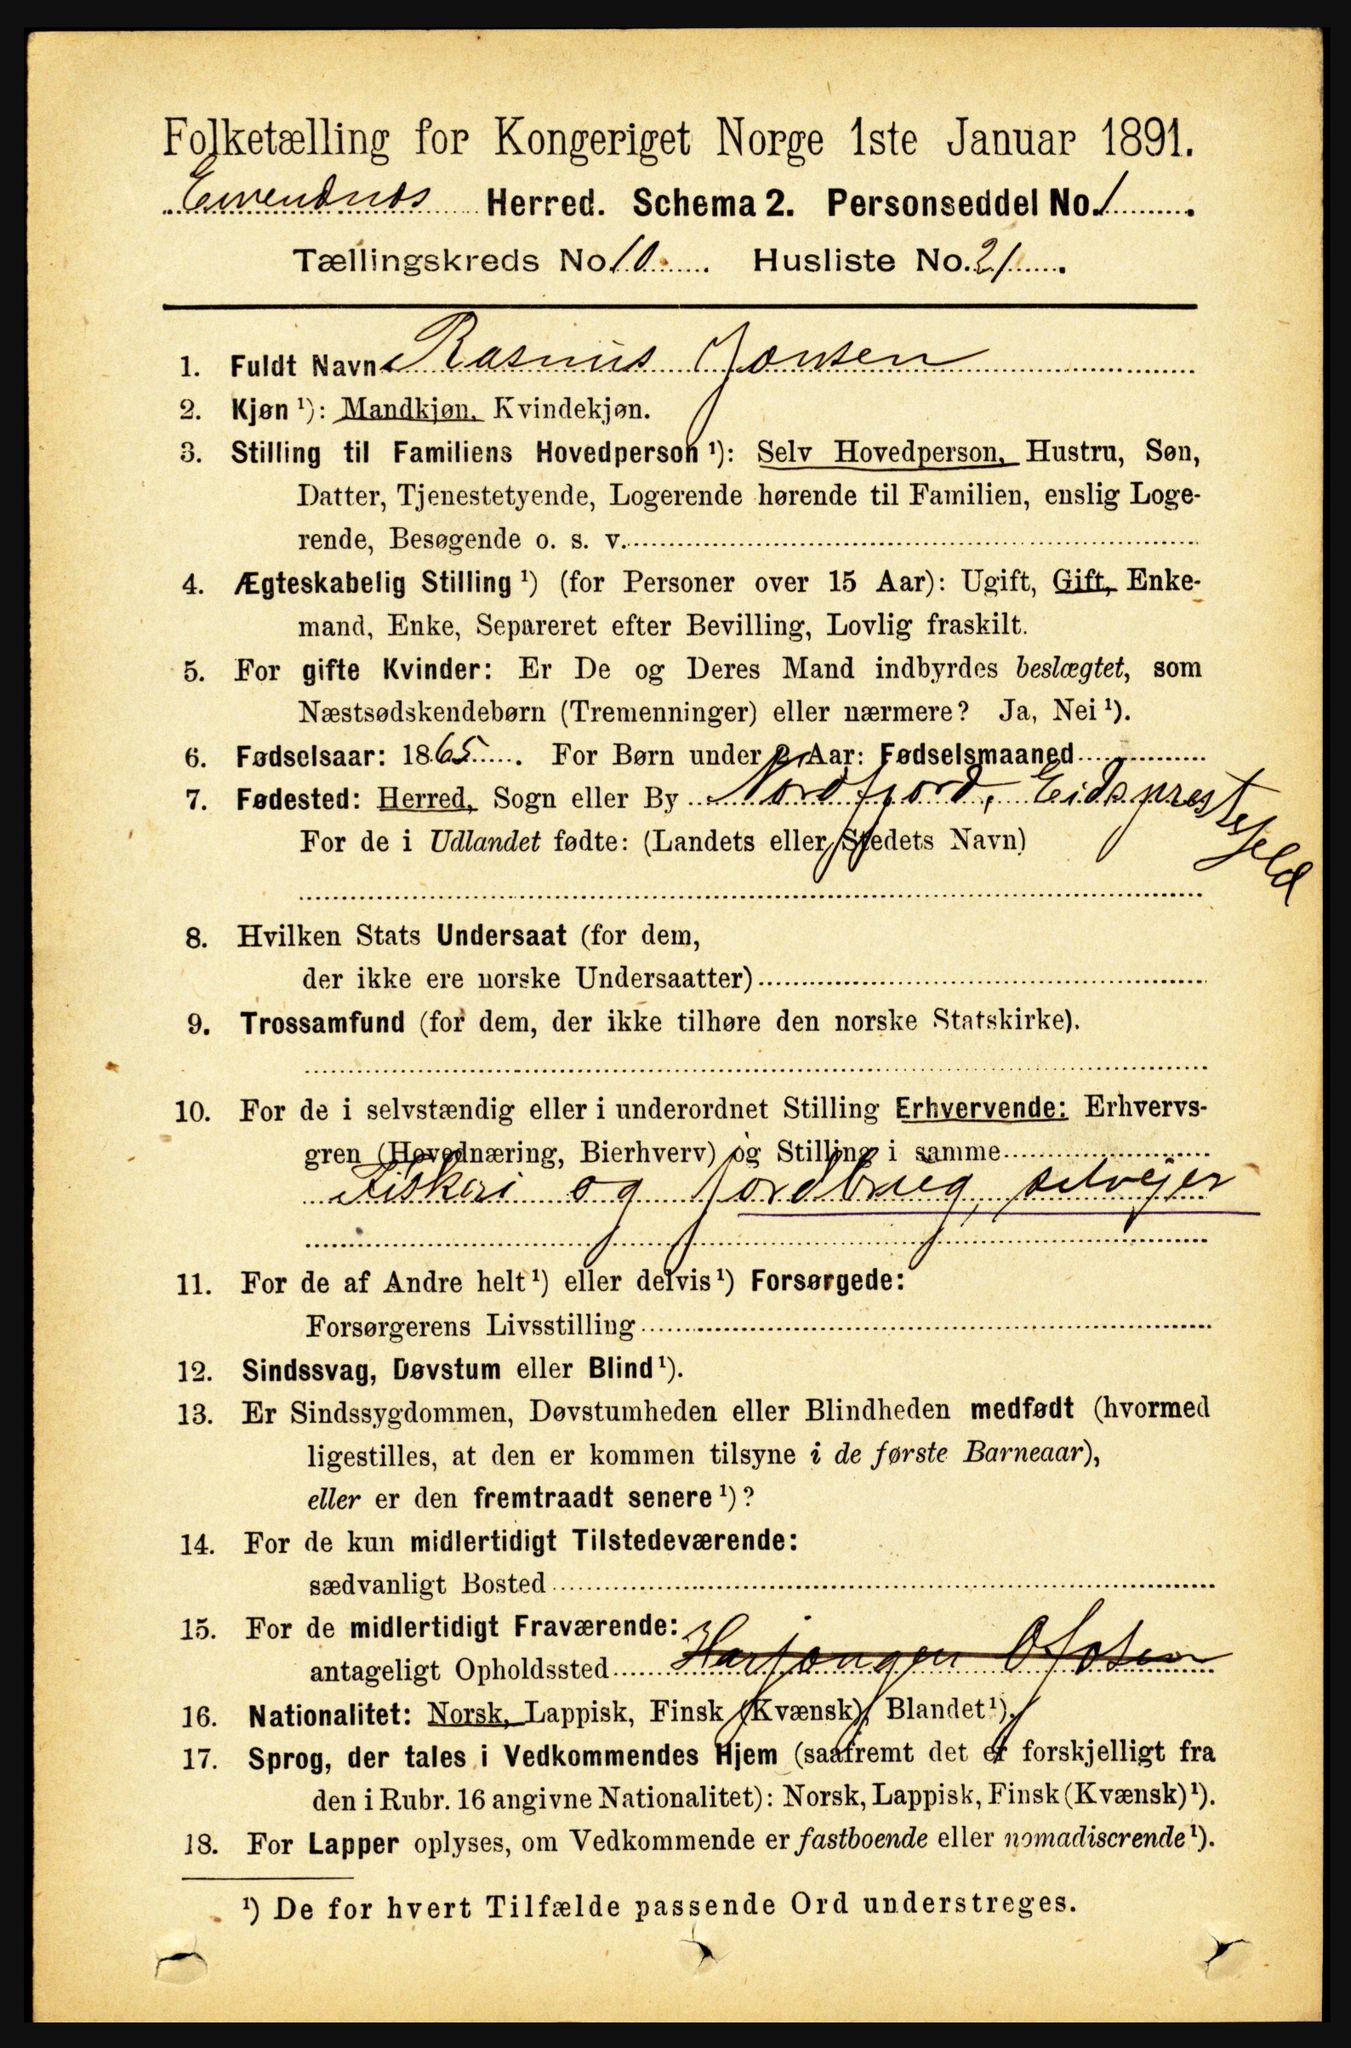 Folketælling for Kongeriget Norge 1ste Januar 1891.
Evenednæs Herred. Schema 2. Personseddel No. 1
Tællingskreds No. 10. Husliste No. 21.
1. Fuldt Navn Rasmus Jonsen
2. Kjøn ¹): Mandkjøn, Kvindekjøn.
3. Stilling til Familiens Hovedperson ¹): Selv Hovedperson, Hustru, Søn,
Datter, Tjenestetyende, Logerende hørende til Familien, enslig Loge-
rende, Besøgende o. s. v.
4. Ægteskabelig Stilling ¹) (for Personer over 15 Aar): Ugift, Gift, Enke-
mand, Enke, Separeret efter Bevilling, Lovlig fraskilt.
5. For gifte Kvinder: Er De og Deres Mand indbyrdes beslægtet, som
Næstsødskendebørn (Tremenninger) eller nærmere? Ja, Nei ¹).
6. Fødselsaar: 1865. For Børn under 2 Aar: Fødselsmaaned
7. Fødested: Herred, Sogn eller By Nordfjord, Eids prestefjeld
For de i Udlandet fødte: (Landets eller Stedets Navn)
8. Hvilken Stats Undersaat (for dem,
der ikke ere norske Undersaatter)
9. Trossamfund (for dem, der ikke tilhøre den norske Statskirke).
10. For de i selvstændig eller i underordnet Stilling Erhvervende: Erhvervs-
gren (Hovednæring, Bierhverv) og Stilling i samme
Fiskeri og Jordbrug, selvejer
11. For de af Andre helt ¹) eller delvis ¹) Forsørgede:
Forsørgerens Livsstilling
12. Sindssvag, Døvstum eller Blind ¹).
13. Er Sindssygdommen, Døvstumheden eller Blindheden medfødt (hvormed
ligestilles, at den er kommen tilsyne i de første Barneaar),
eller er den fremtraadt senere ¹)?
14. For de kun midlertidigt Tilstedeværende:
sædvanligt Bosted
15. For de midlertidigt Fraværende:
antageligt Opholdssted Harjangen Ofoten
16. Nationalitet: Norsk, Lappisk, Finsk (Kvænsk), Blandet ¹).
17. Sprog, der tales i Vedkommendes Hjem (saafremt det er forskjelligt fra
den i Rubr. 16 angivne Nationalitet): Norsk, Lappisk, Finsk (Kvænsk) ¹).
18. For Lapper oplyses, om Vedkommende er fastboende eller nomadiserende ¹).
¹) De for hvert Tilfælde passende Ord understreges.